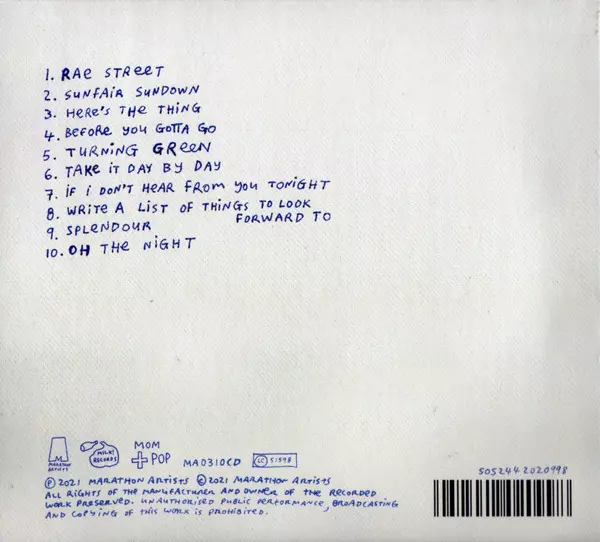 1. RAE STREET
2. SUNFAIR SUNDOWN
3. HERE'S THE THING
4. BEFORE YOU GOTTA GO
5. TURNING GREEN
6. TAKE IT DAY BY DAY
7. IF I DON'T HEAR FROM YOU TONIGHT
8. WRITE A LIST OF THINGS TO LOOK
FORWARD TO
9. SPLENDOUR
10. OH THE NIGHT
MARATHON
ARTISTS
MILK!
RECORDS
MOM
+POP
MA0310CD
LC 51598
5052442020998
℗ 2021 MARATHON ARTISTS © 2021 MARATHON ARTISTS
ALL RIGHTS OF THE MANUFACTURER AND OWNER OF THE RECORDED
WORK PRESERVED. UNAUTHORISED PUBLIC PERFORMANCE, BROADCASTING
AND COPYING OF THIS WORK IS PROHIBITED.